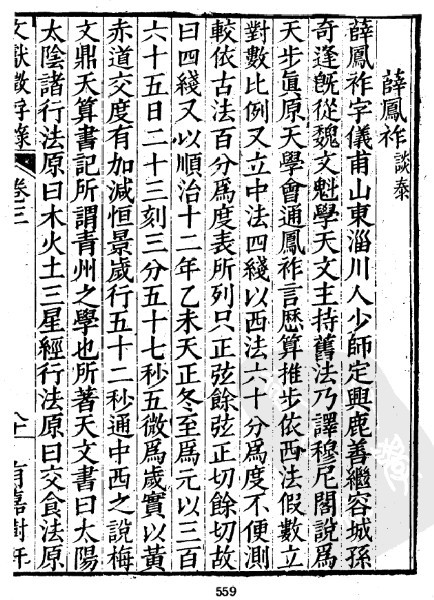 薛鳳祚 談泰
薛鳳祚字儀甫山東淄川人少師定興鹿善繼容城孫
奇逢旣從魏文魁學天文主持舊法乃譯穆尼閣說爲
天步眞原天學會通鳳祚言歴算推步依西法假數立
對數比例又立中法四綫以西法六十分爲度不便測
較依古法百分爲度表所列只正弦餘弦正切餘切故
曰四綫又以順治十二年乙未天正冬至爲元以三百
六十五日二十三刻三分五十七秒五微爲歲實以黃
赤道交度有加減恒景歲行五十二秒通中西之說梅
文鼎天算書記所謂青州之學也所著天文書曰太陽
太陰諸行法原曰木火土三星經行法原曰交食法原
文獻徵存錄 卷三 有嘉樹軒
559